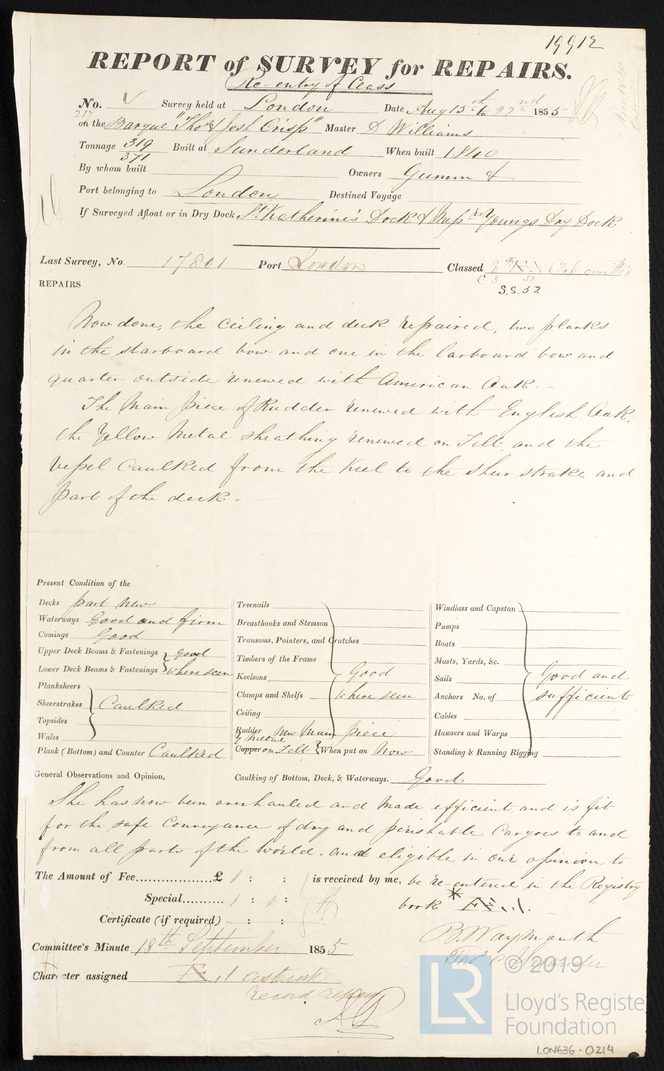 19912
REPORT of SURVEY for REPAIRS.
Re-entry of Class
No. Survey held at London Date Aug 13th to 22nd 1855
217 on the Barque "Thos & Josh Crisp" Master D Williams
Tonnage 319 Built at Sunderland When built 1840
371
By whom built Owners Gumm &
Port belonging to London Destined Voyage
If Surveyed Afloat or in Dry Dock St Katherine's Dock & Mess Youngs Dry Dock
Last Survey, No 17801 Port London Classed
S.S. 52
REPAIRS
Now done, the ceiling and deck repaired, two planks
in the starboard bow and one in the larboard bow and
quarter outside renewed with American Oak.
The Main piece of Rudder renewed with English Oak.
the Yellow Metal sheathing renewed on Felt and the
vessel Caulked from the Keel to the sheer strake and
part of the deck.
Present Condition of the
Decks part new
Waterways Good and firm
Comings Good
Upper Deck Beams & Fastenings good
Lower Deck Beams & Fastenings where seen
Planksheers
Sheerstrakes Caulked
Topsides
Wales
Plank (Bottom) and Counter Caulked
Treenails
Breasthooks and Stemson
Transoms, Pointers, and Crutches
Timbers of the Frame
Keelsons Good
Clamps and Shelfs where seen
Ceiling
Rudder New Main piece
Y Metal
Copper on Felt When put on Now
Windlass and Capstan
Pumps
Boats
Masts, Yards, &c.
Sails Good and
Anchors No. of sufficient
Cables
Hawsers and Warps
Standing & Running Rigging
General Observations and Opinion, Caulking of Bottom, Deck, & Waterways. Good
She has now been overhauled and made efficient and is fit
for the safe Conveyance of dry and perishable Cargoes to and
from all parts of the world. and eligible in our opinion to
The Amount of Fee £ 1 : : is received by me, be re-entered in the Registry
Special 1 : 1 : book * Æ.1.
Certificate (if required) : :
B. Waymouth
Committee's Minute 18th September 1855
Character assigned Æ 1 asterisk
record repairs
© 2019
LR
Lloyd's Register
Foundation
LON636-0214